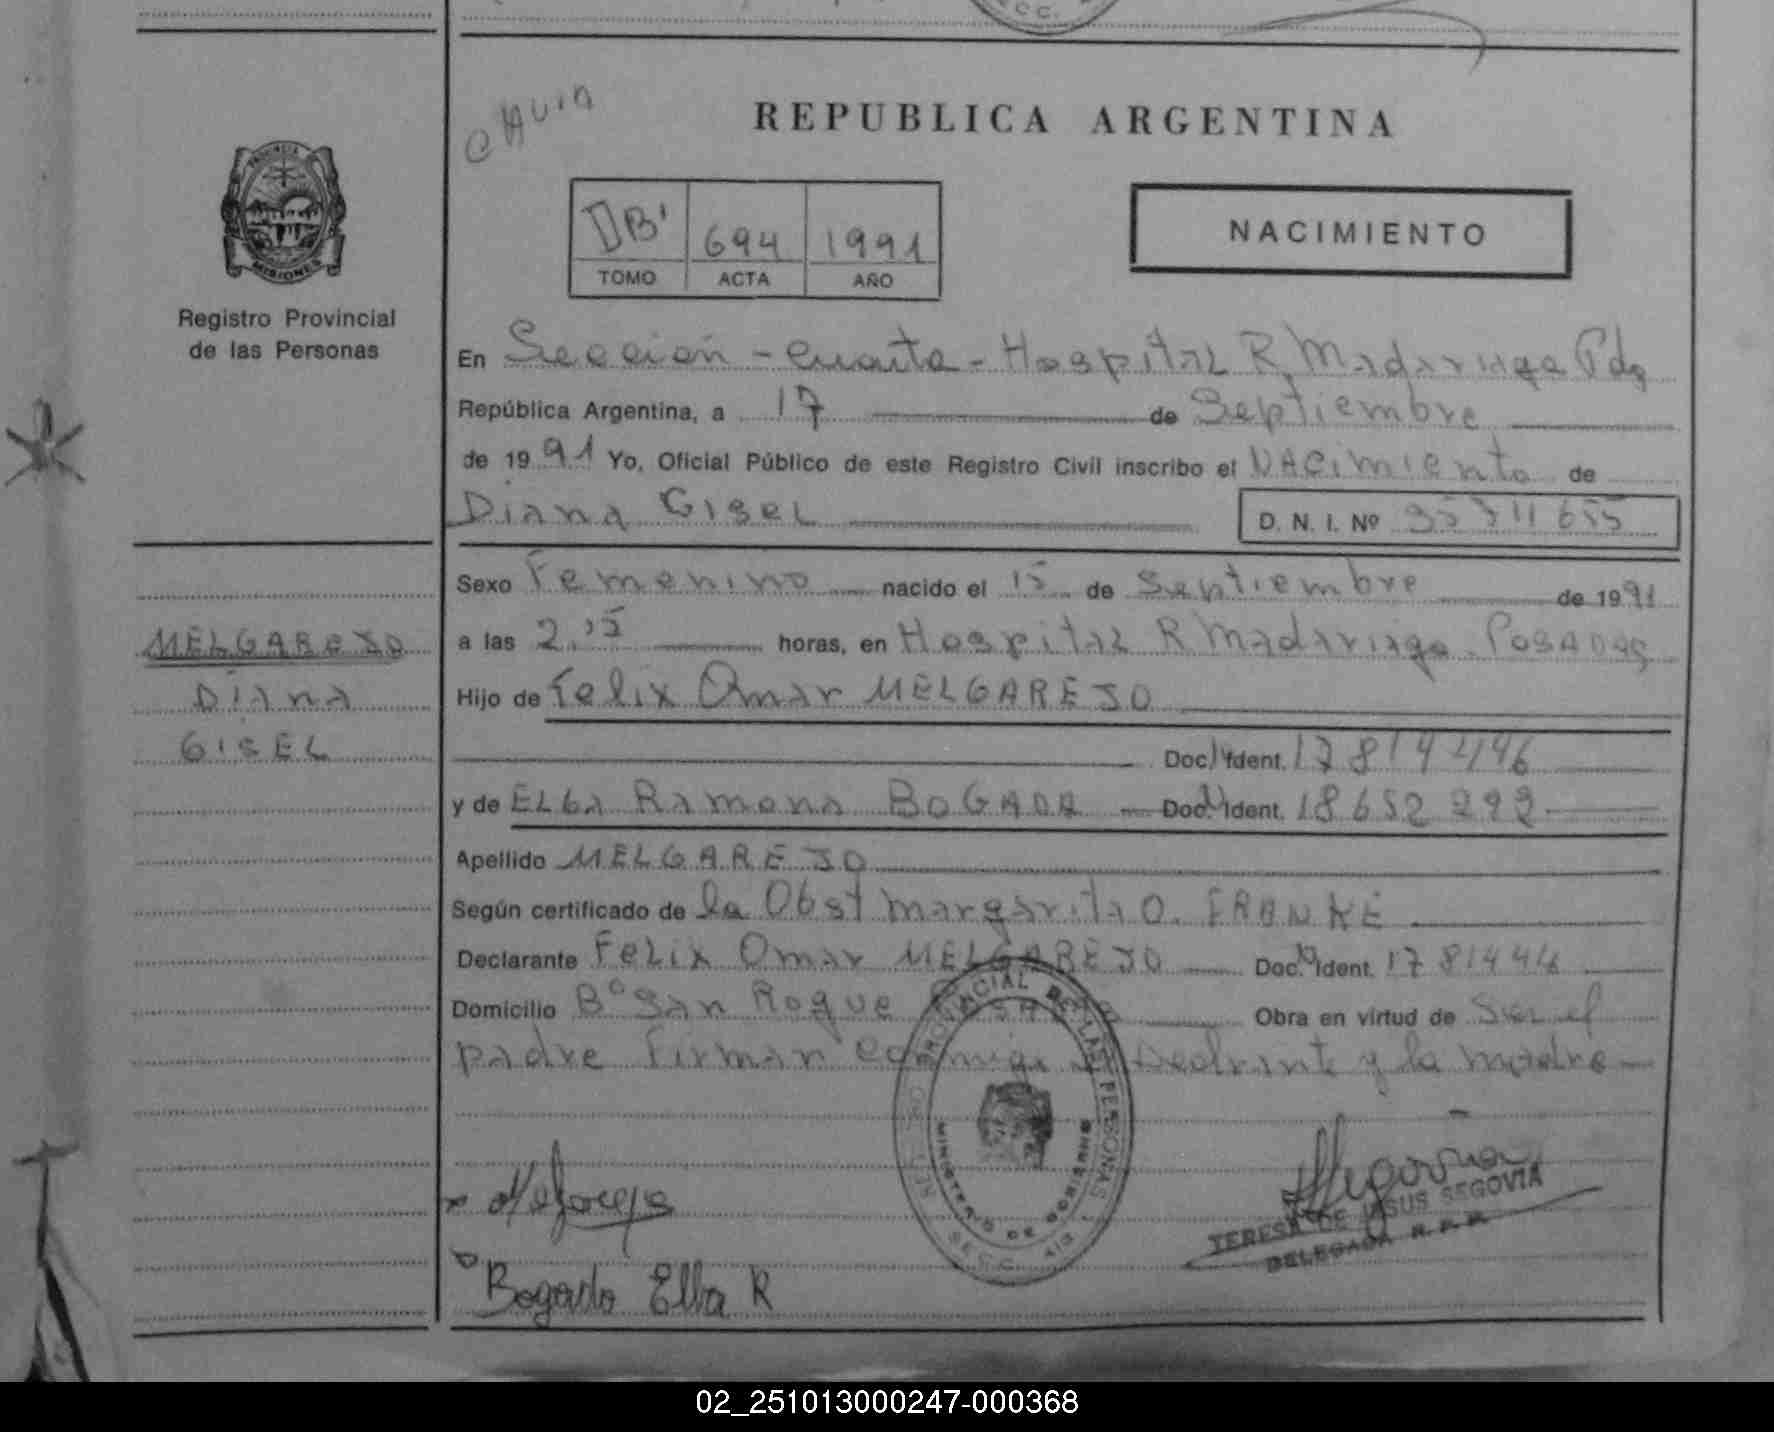 REPUBLICA ARGENTINA
PROVINCIA
MISIONES
Registro Provincial
de las Personas
694 1991
TOMO ACTA AÑO
NACIMIENTO
En Seccion - Cuarta - Hospital R Madariaga Pdas
República Argentina, a 17 de Septiembre
de 1991 Yo, Oficial Público de este Registro Civil inscribo el Nacimiento de
Diana Gisel D. N. I. Nº
Sexo Femenino nacido el 15 de Septiembre de 1991
a las 2,15 horas, en Hospital R Madariaga. Posadas
Hijo de Felix Omar MELGAREJO
Doc. Ident. 17814446
y de Elba Ramona BOGADA Doc. Ident. 18652292
Apellido MELGAREJO
Según certificado de la Obst Margarita O. FRANKE
Declarante Felix Omar MELGAREJO Doc. Ident. 17814446
Domicilio Bº San Roque Obra en virtud de Ser el
padre Firman y la madre
MELGAREJO
Diana
GISEL
REGISTRO PROVINCIAL DE LAS PERSONAS
MINISTERIO DE GOBIERNO
SECC. 4ta
TERESA DE JESUS SEGOVIA
DELEGADA R. P. P.
Bogado Elba R
02_251013000247-000368